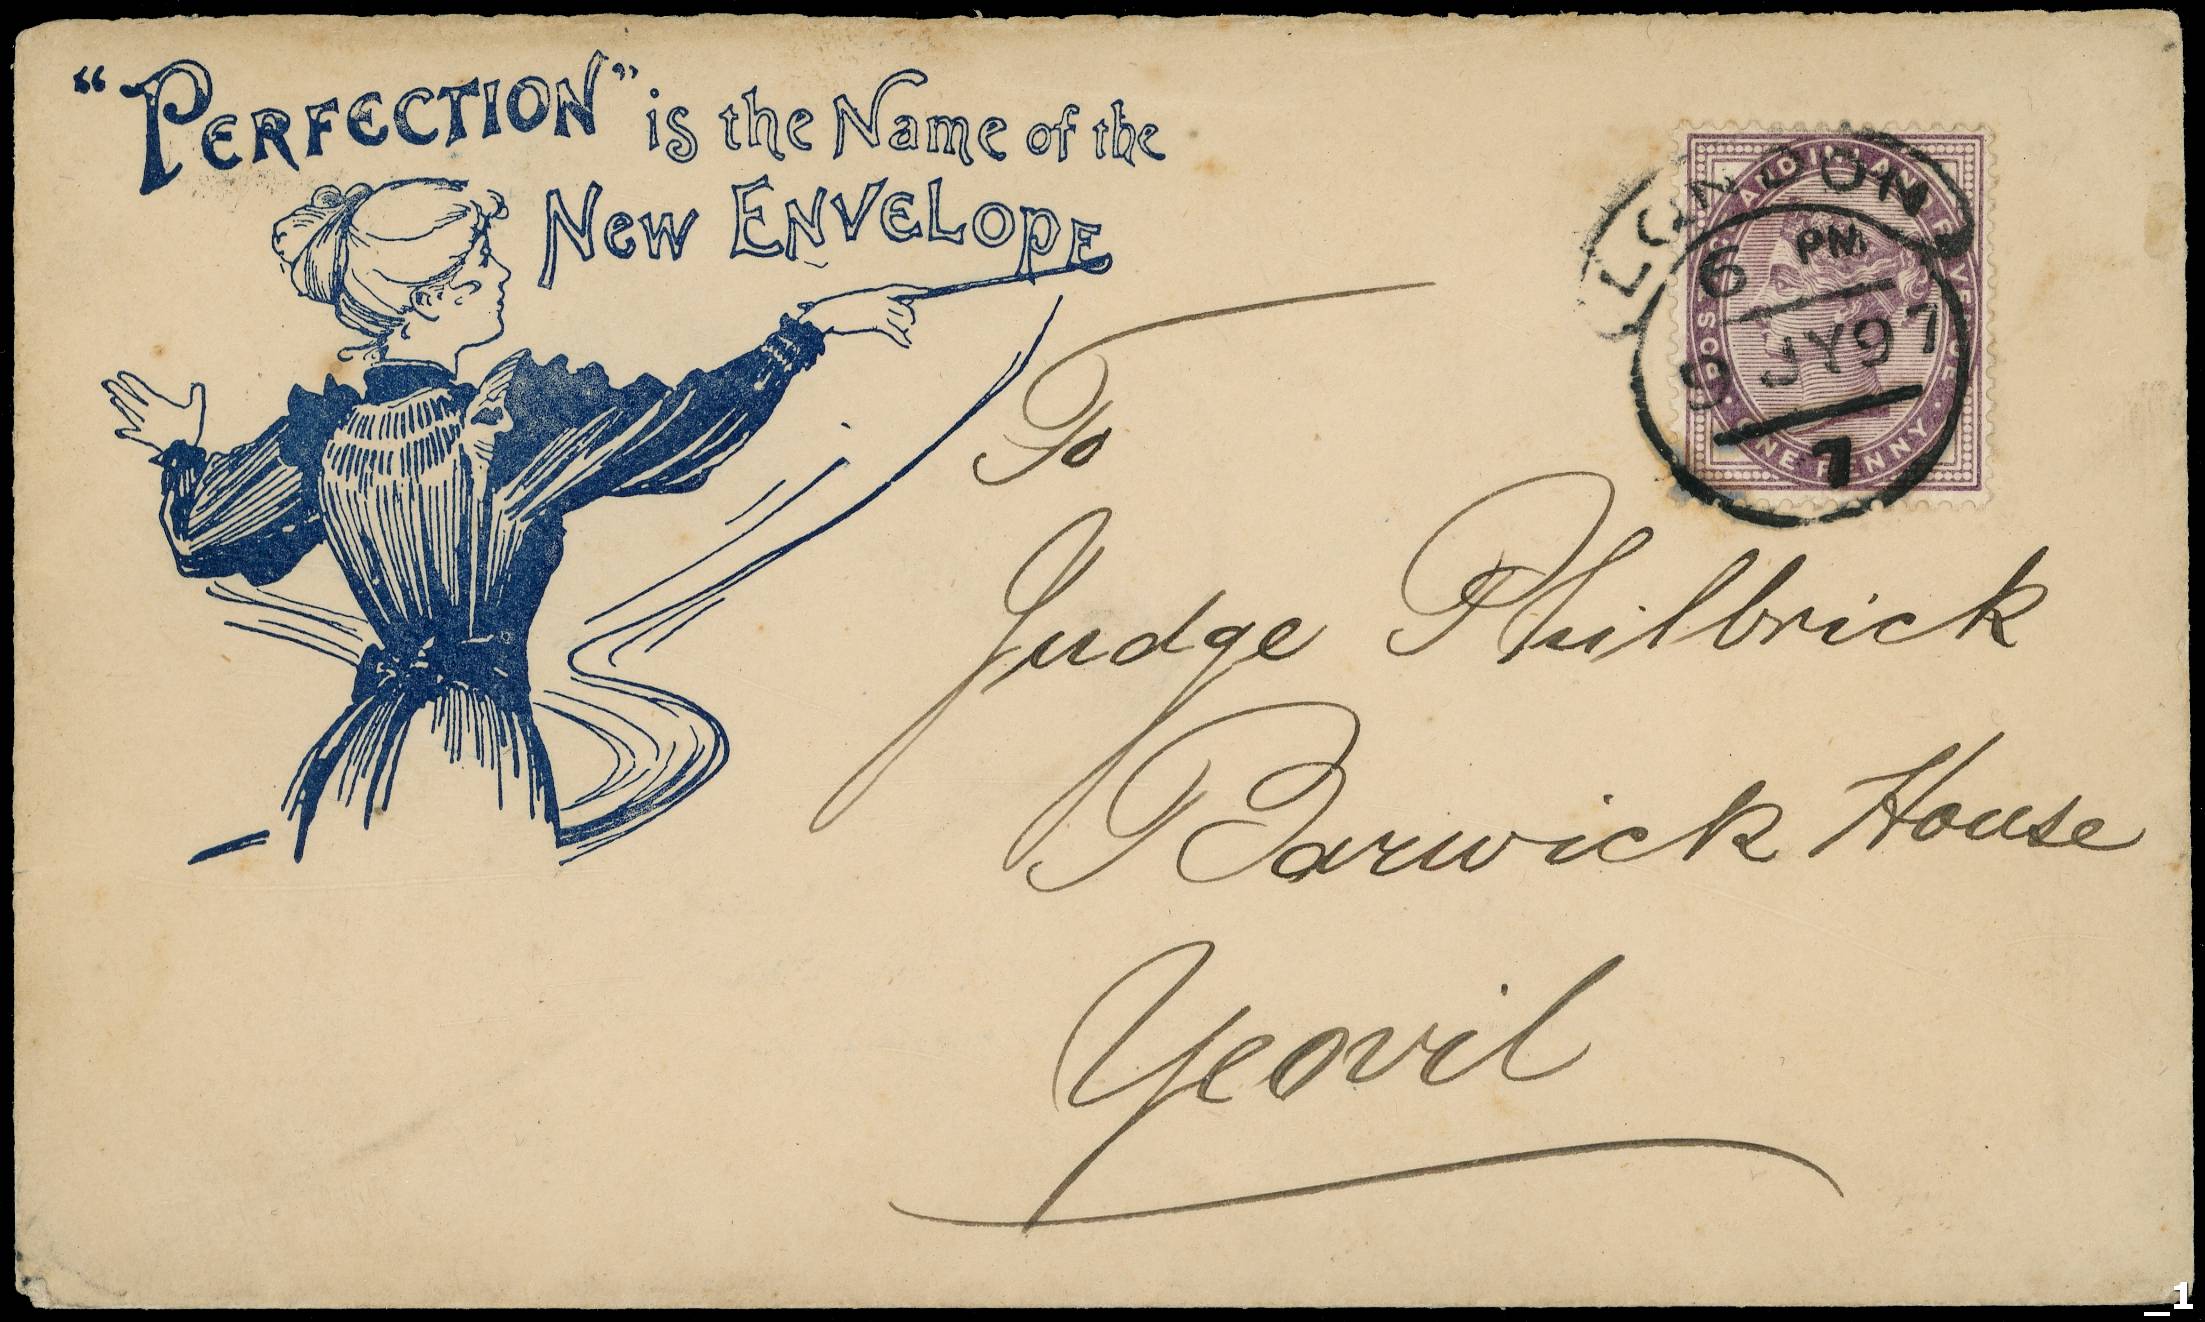 “PERFECTION” is the Name of the
New ENVELOPE
LONDON
6 PM
9 JY 97
7
POSTAGE AND INLAND REVENUE
ONE PENNY
To
Judge Philbrick
Barwick House
Yeovil
_1